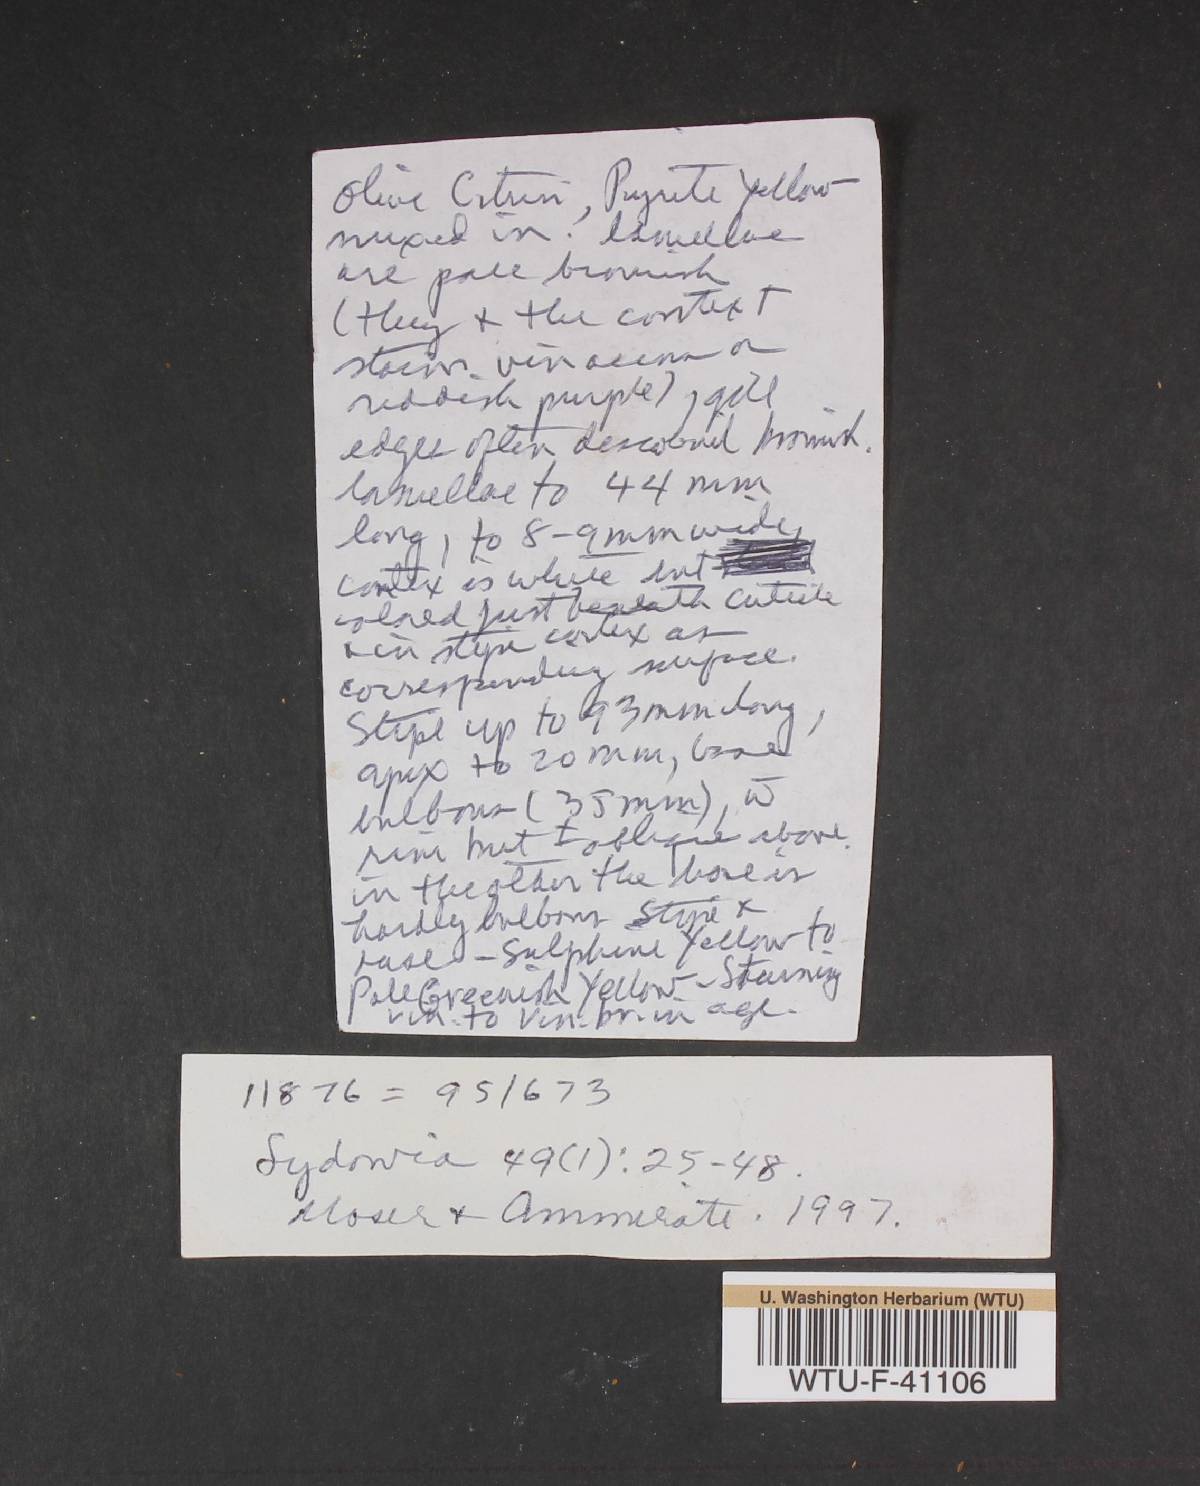 Olive Citrin, Pyrite Yellow
mixed in. lamellae
are pale brownish
(they & the context
stains vinaceous or
reddish purple), gill
edges often descolored brownish.
lamellae to 44 mm
long, to 8-9mm wide,
contex is white but
colored just beneath cuticle
& in stipe cortex as
corresponding surface.
Stipe up to 93mm long,
apex to 20mm, base
bulbous (35mm), w̄
rim but ± oblique above.
in the older the base is
hardly bulbous Stipe &
base - Sulphine Yellow to
Pale Greenish Yellow - Staining
vin. to vin. br. in age.
11876 = 95/673
Sydowia 49(1): 25-48.
Moser & Ammirati. 1997.
U. Washington Herbarium (WTU)
WTU-F-41106